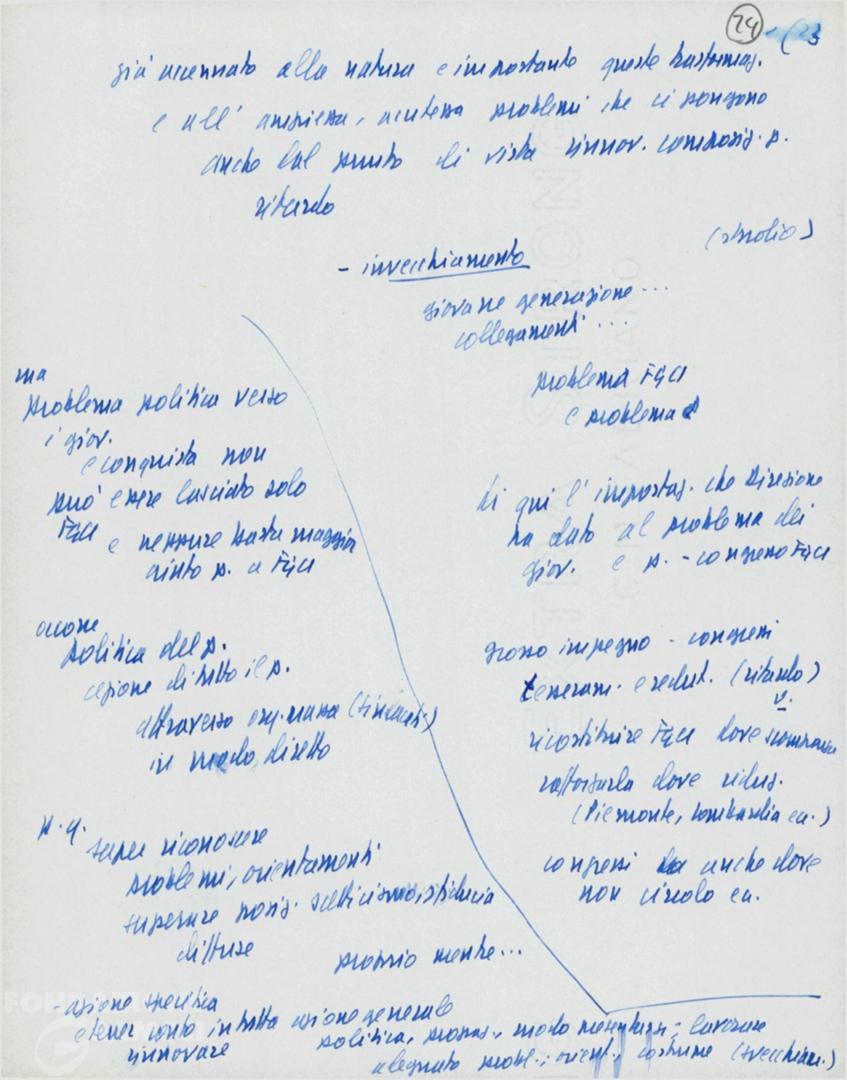 24 - (23
già accennato alla natura e importante queste trasformaz.
e all' ampiezza, acutezza problemi che ci pongono
anche dal punto di vista rinnov. composiz. p.
ritardo
(studio)
- invecchiamento
giovane generazione ...
collegamenti ...
problema FGCI
e problema
ma
problema politica verso
i giov.
e conquista non
può essere lasciato solo
FGCI
e neppure basta maggior
aiuto p. a FGCI
di qui l' importaz. che Direzione
ha dato al problema dei
giov. e p. - congresso FGCI
occorre
politica del p.
azione di tutto il p.
attraverso org. massa (sindacati)
in modo diretto
grosso impegno - congressi
tesseram. e reclut. (ritardo)
v.
ricostituire FGCI dove scomparsa
rafforzarla dove ridus.
(Piemonte, Lombardia ecc.)
congressi anche dove
non circolo ecc.
p. q.
saper riconoscere
problemi, orientamenti
superare posiz. scetticismo, sfiducia
diffuse
proprio mentre ...
- azione specifica
e tener conto in tutta azione generale
rinnovare
politica, propag., modo presentarsi; lavorare
adeguato probl., orient., costume (svecchiam.)
FONDAZIONE